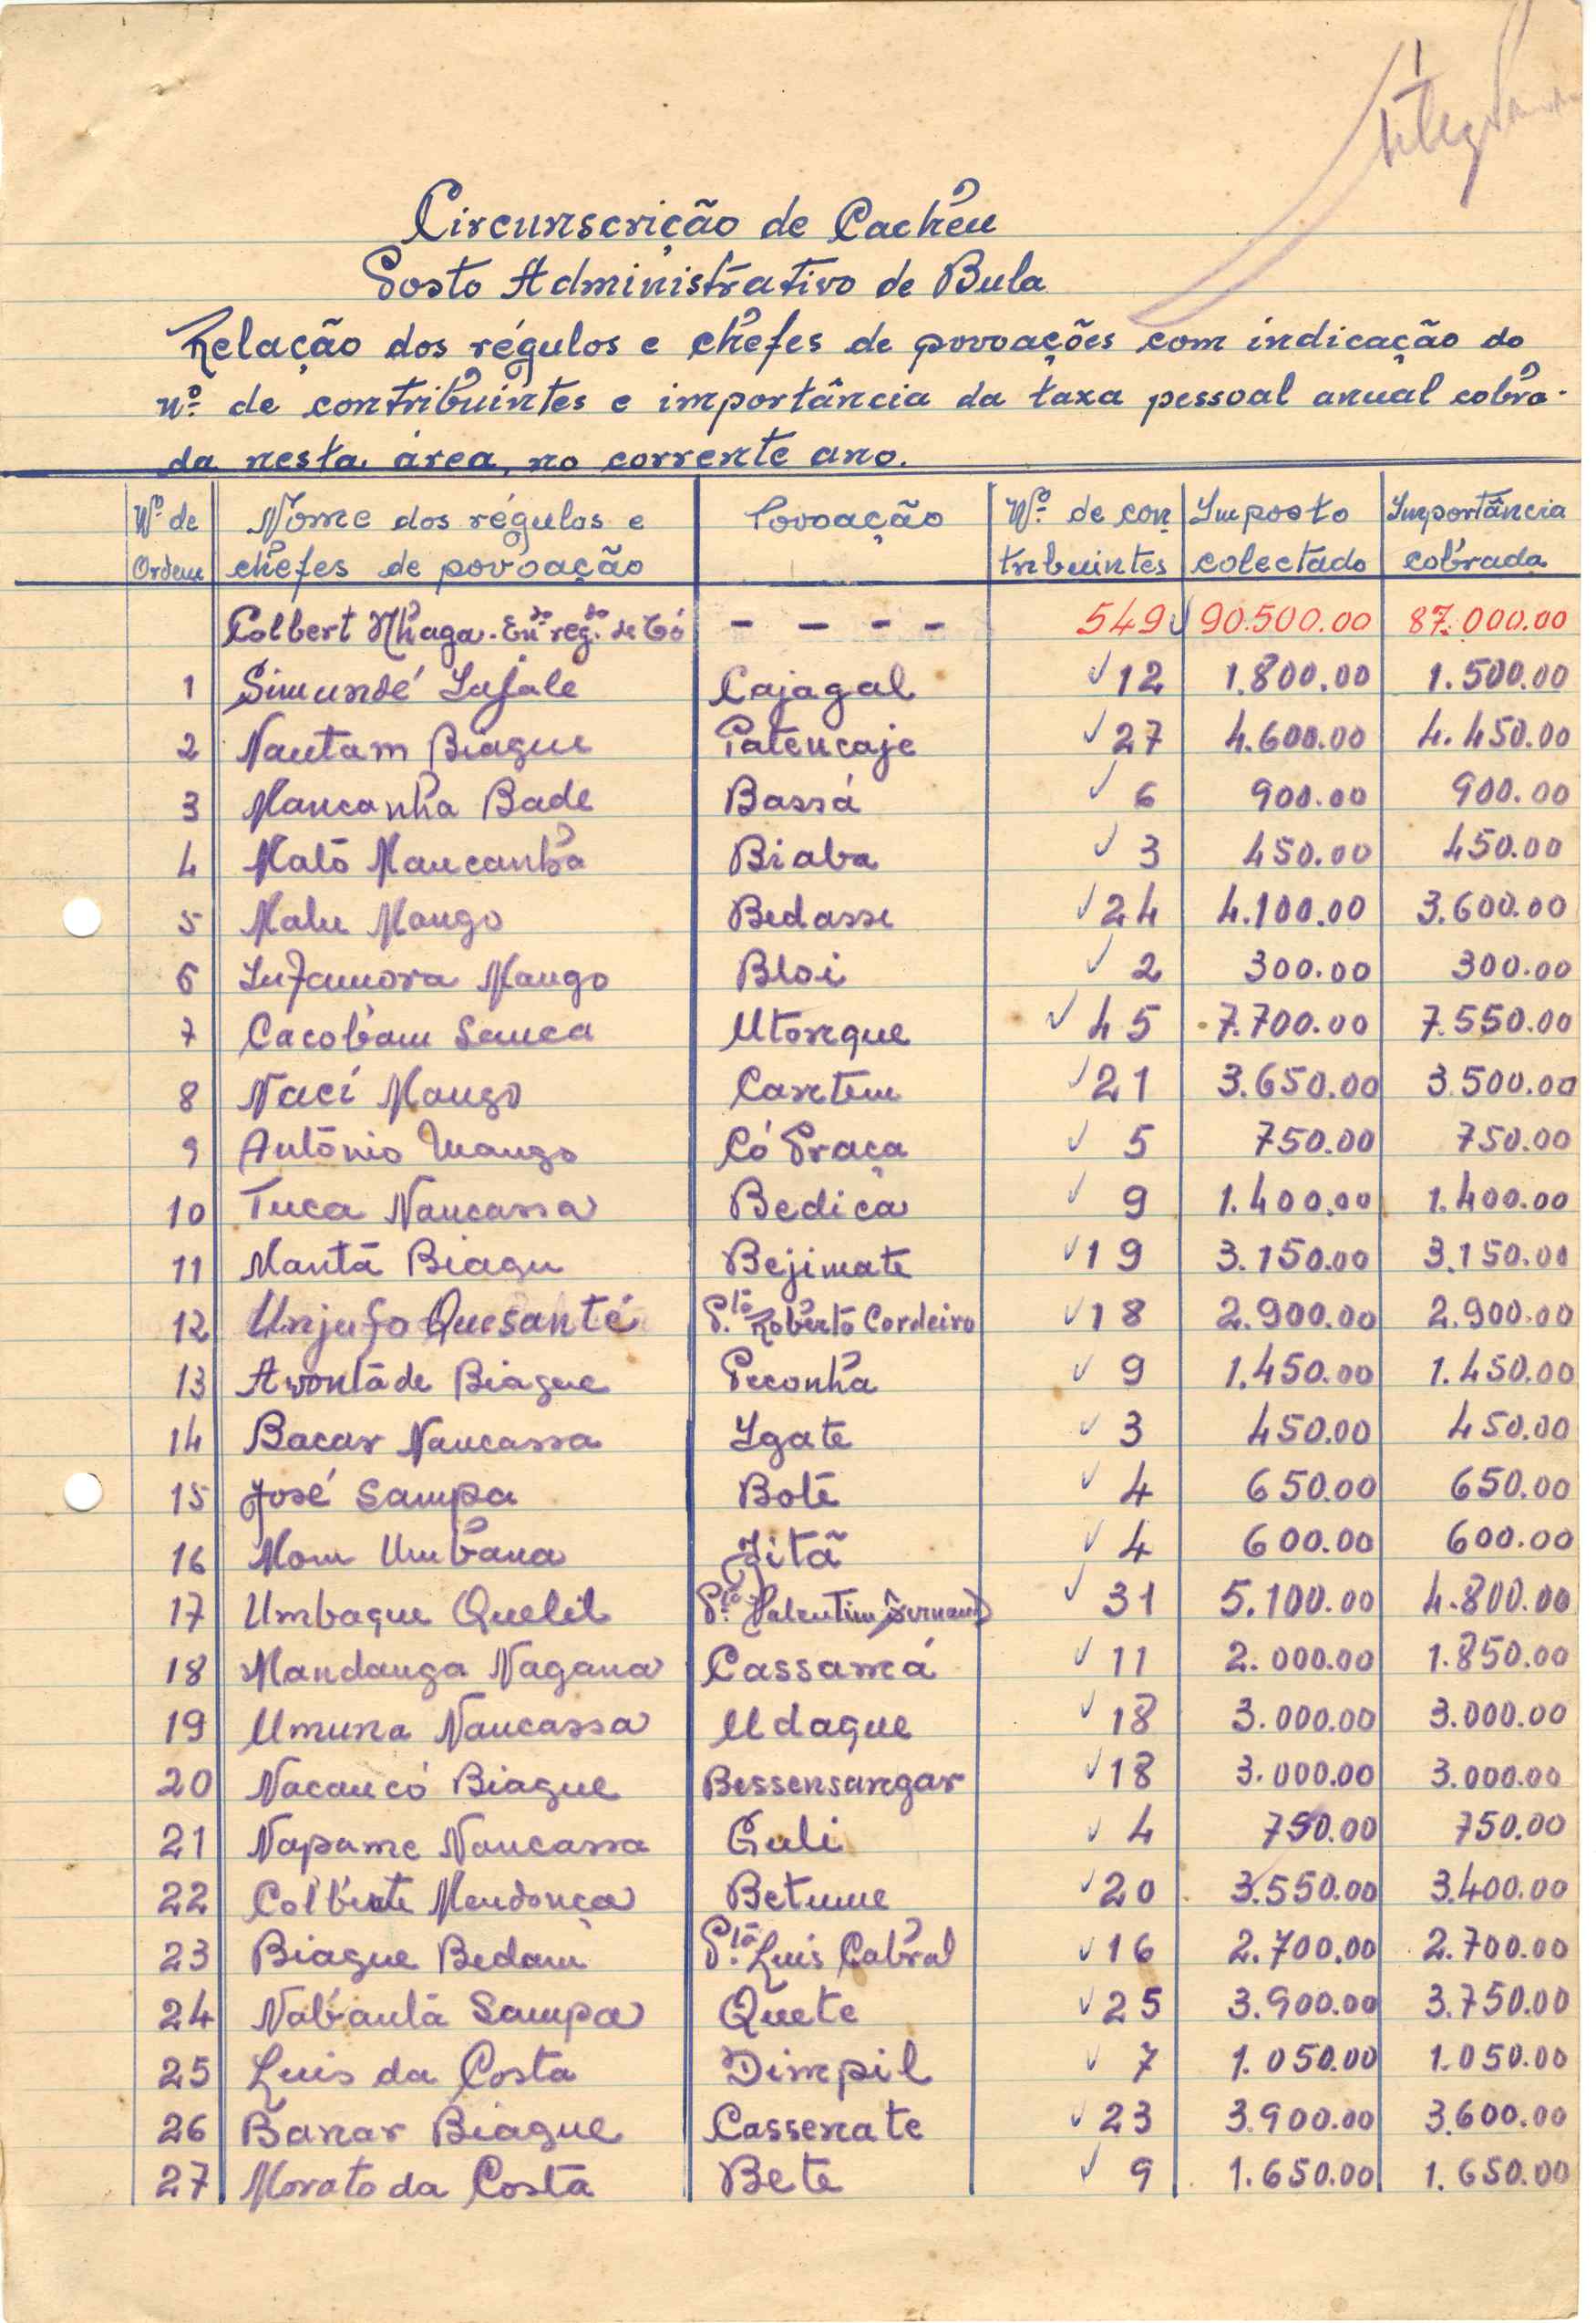 Circunscrição de Cachéu
Posto Administrativo de Bula
Relação dos régulos e chefes de povoações com indicação do
nº de contribuintes e importância da taxa pessoal anual cobra-
da nesta área, no corrente ano.
Nº de Ordem | Nome dos régulos e chefes de povoação | Povoação | Nº de contribuintes | Imposto colectado | Importância cobrada
Colbert Nhaga - de Có - - - - 549 90.500.00 87.000.00
1 Simundé Cajagal 12 1.800.00 1.500.00
2 Nautam Biague Patencaje 27 4.600.00 4.450.00
3 Mancanha Bade Bassá 6 900.00 900.00
4 Malô Mancanha Biaba 3 450.00 450.00
5 Malu Mango Bedasse 24 4.100.00 3.600.00
6 Mango Bloi 2 300.00 300.00
7 Cacobam Sanca Utonque 45 7.700.00 7.550.00
8 Naci Mango Cantem 21 3.650.00 3.500.00
9 António Mango Có Praça 5 750.00 750.00
10 Tuca Nancassa Bedica 9 1.400.00 1.400.00
11 Mantã Biagu Bejimate 19 3.150.00 3.150.00
12 Unjufo Quesanté P.tª Roberto Cordeiro 18 2.900.00 2.900.00
13 Avontade Biague Peconha 9 1.450.00 1.450.00
14 Bacar Nancassa Igate 3 450.00 450.00
15 José Sampa Botê 4 650.00 650.00
16 Mom Umbana Jitã 4 600.00 600.00
17 Umbaque Quelil P.tª Valentim 31 5.100.00 4.800.00
18 Mandanga Nagana Cassamá 11 2.000.00 1.850.00
19 Umuna Nancassa Udaque 18 3.000.00 3.000.00
20 Nacancó Biague Bessensangar 18 3.000.00 3.000.00
21 Napame Nancassa Guli 4 750.00 750.00
22 Mendonça Betume 20 3.550.00 3.400.00
23 Biague Bedam P.tª Luis Cabral 16 2.700.00 2.700.00
24 Nabanlã Sampa Quete 25 3.900.00 3.750.00
25 Luis da Costa Dimpil 7 1.050.00 1.050.00
26 Banar Biague Cassenate 23 3.900.00 3.600.00
27 Morato da Costa Bete 9 1.650.00 1.650.00